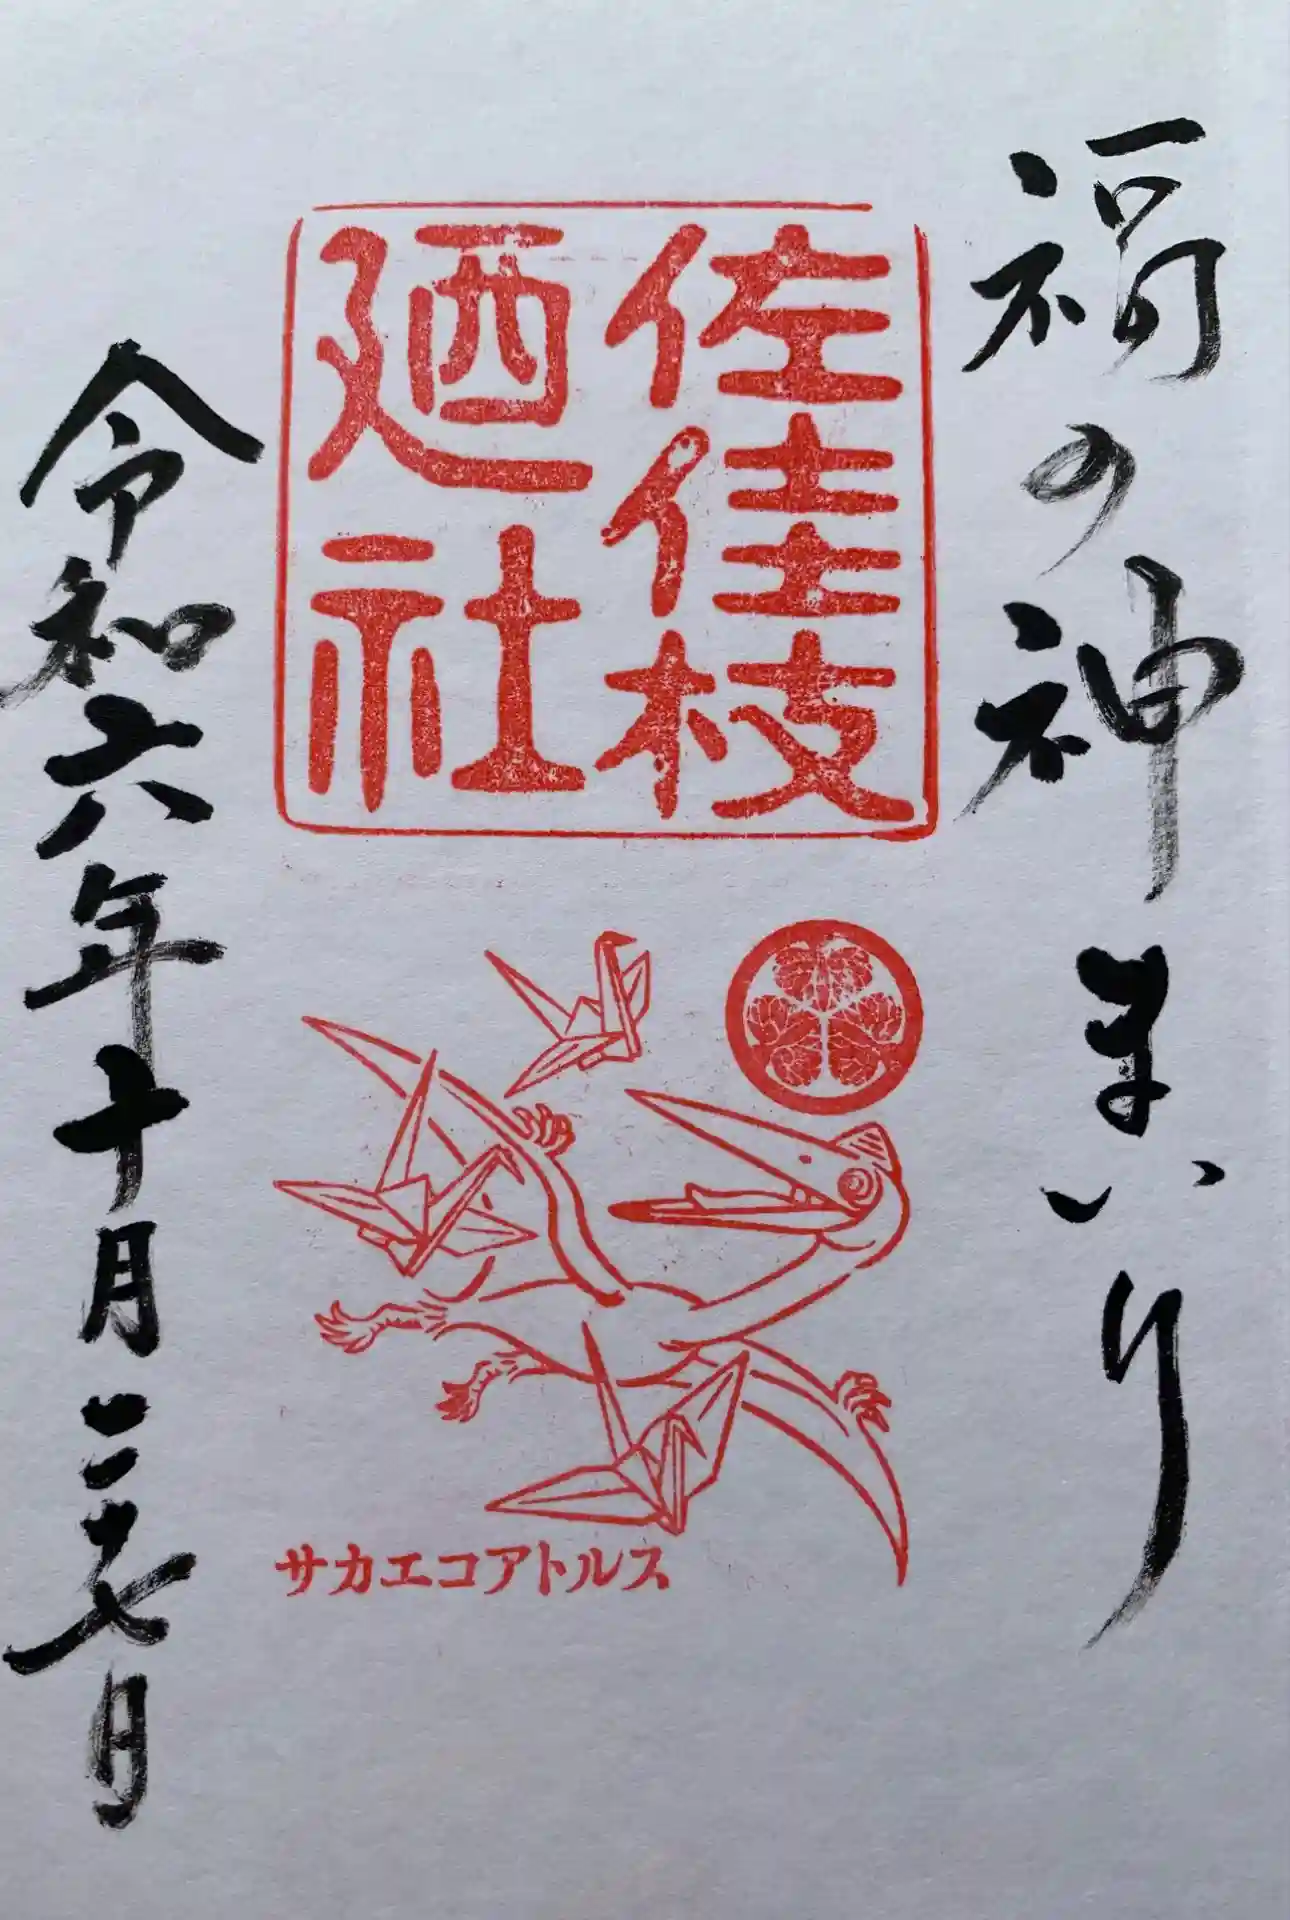 福の神まいり
佐佳枝
廼社
サカエコアトルス
令和六年十月二七日